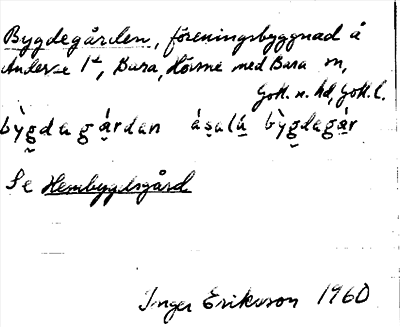 Bygdegården, föreningsbyggnad å
Anderse 1⁴, Bara, Hörsne med Bara sn,
Gotl. n. hd, Gotl. l.
bỳg̬da gá̱rdan ás̱alú̱ bỳg̬degá̱r
Se Hembygdsgård
Inger Erikson 1960